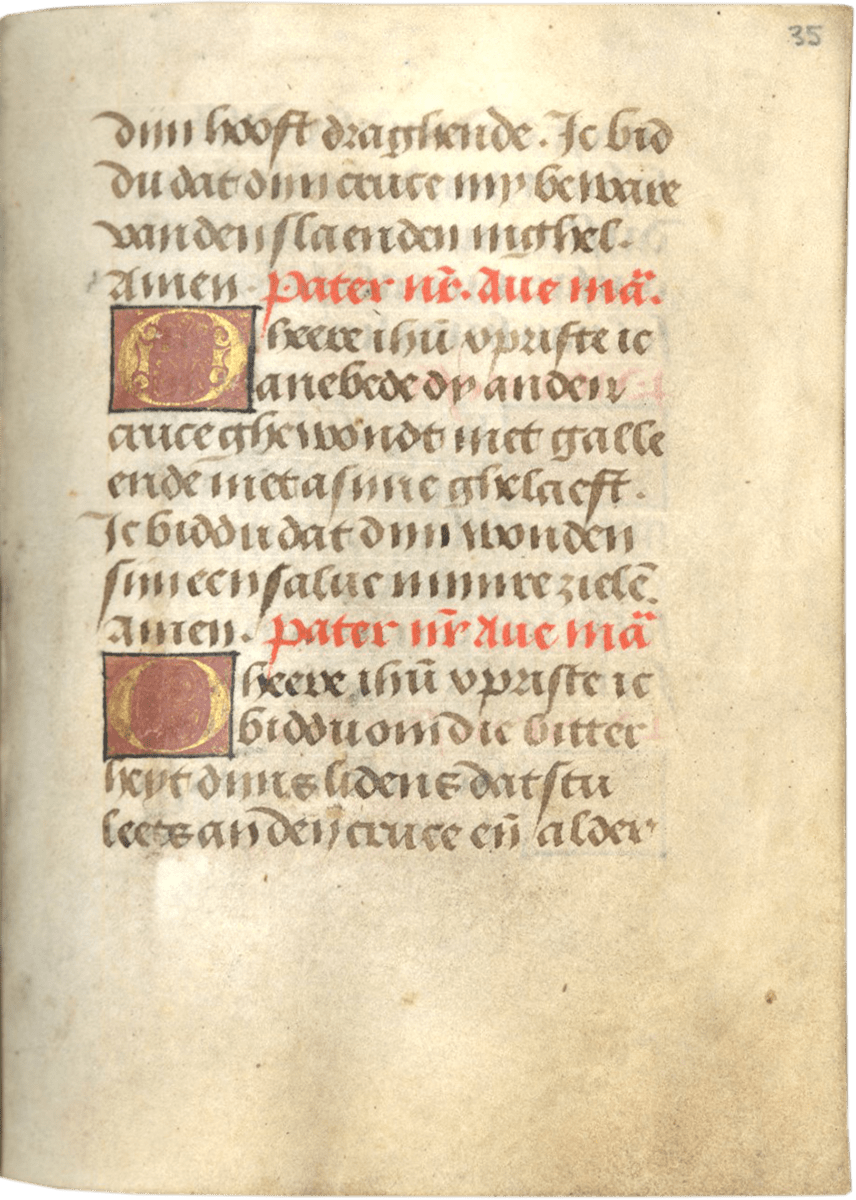 35
dijn hooft draghende. Ic bid
du dat dijn cruce my beware
van den slaenden inghel.
Amen. Pater nr̄. Aue mā.
O heere ihū xpriste ic
anebede dy an den
cruce ghewondt met galle
ende met asine ghelaeft.
Ic biddu dat dijn wonden
sijn een salue mijnre zielē.
Amen. Pater nr̄ Aue mā
O heere ihū xpriste ic
biddu om die bitter
heyt dijns lidens datstu
leets an den cruce eñ alder